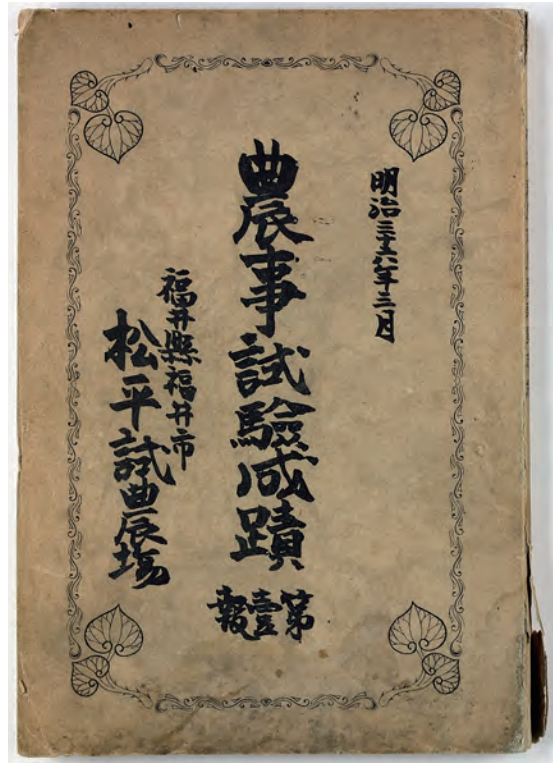 明治三十六年三月
農事試驗成蹟
第壹報
福井縣福井市
松平試農場